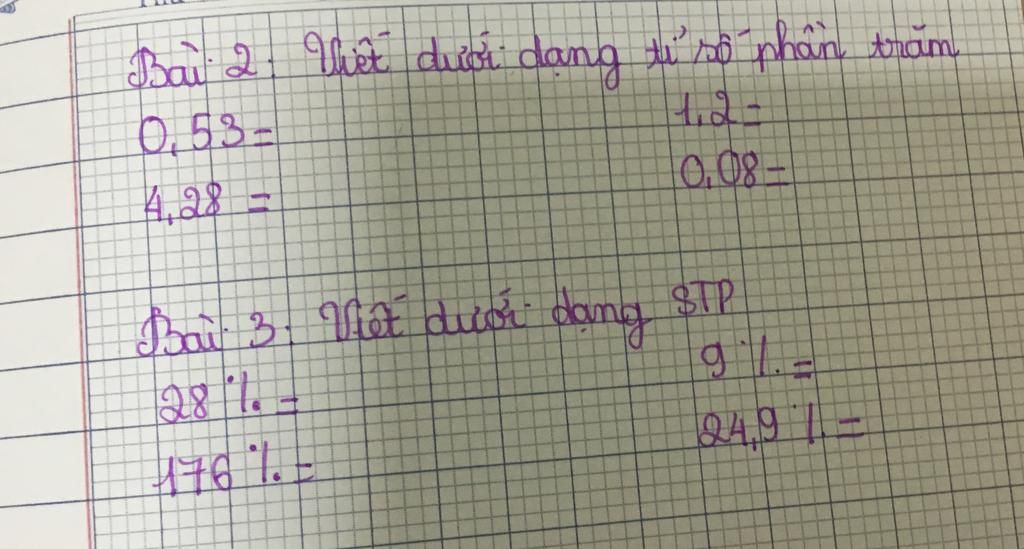 Bài 2: Viết dưới dạng tỉ số phần trăm
0,53 = 1,2 =
4,28 = 0,08 =
Bài 3: Viết dưới dạng STP
28 % = 9 % =
176 % = 24,9 % =